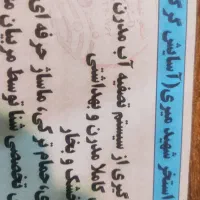 استخر شهید میری(آسایش گر
گیری از سیستم تصفیه آب مدرن
کاملا مدرن و بهداشتی
خشک و بخار
حمام ترکی، ماساژ حرفه ای
تخصصی شنا توسط مربیان